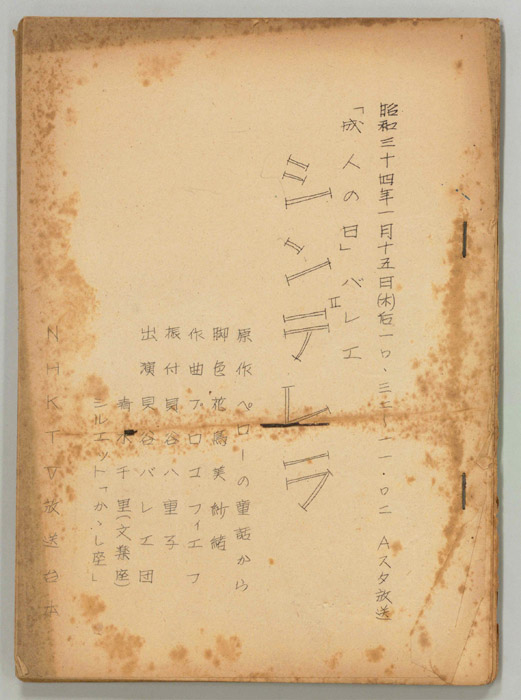 昭和三十四年一月十五日(木)后一〇、三〇〜一一・〇二 Aスタ放送
「成人の日」バレエ
シンデレラ
原作 ペローの童話から
脚色 花鳥美紗緒
作曲 プロコフィエフ
振付 貝谷八重子
出演 貝谷バレエ団
青木千里(文学座)
シルエット「かゝし座」
NHKTV放送台本